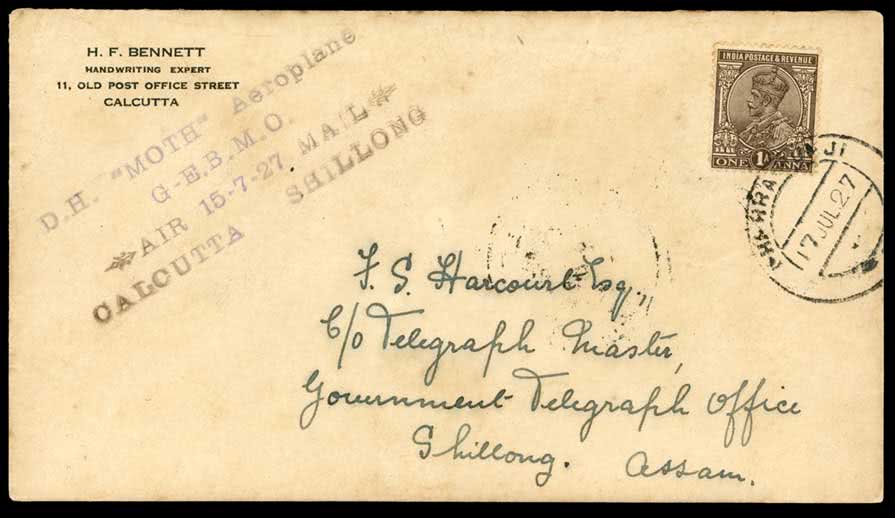 H. F. BENNETT
HANDWRITING EXPERT
11, OLD POST OFFICE STREET
CALCUTTA
D.H. "MOTH" Aeroplane
G-E.B.M.O.
AIR 15-7-27 MAIL
CALCUTTA SHILLONG
INDIA POSTAGE & REVENUE
ONE 1A ANNA
17 JUL 27
F. S. Harcourt Esq.,
C/o Telegraph Master,
Government Telegraph Office
Shillong. Assam.